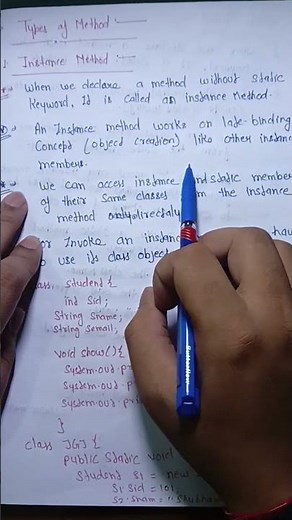 Types of Method :-
1. Instance Method :-
when we declare a method without static
keyword, It is called an instance method.
An Instance method works on late-binding
Concept (object creation) like other instanc
members.
we can access instance and static member
of their same classes in the Instance
method directaly
or Invoke an instanc hav
to use its class object
class student {
int Sid;
String Sname;
String Semail;
void show() {
System.out.p
System.out.p
System.out.pri
}
class JGJ {
public static void
Student S1 = new
S1.Sid = 101;
S2.Snam = "Shubham